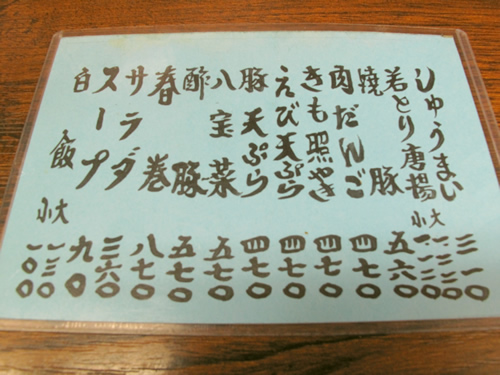 しゅうまい 三一〇
若とり唐揚 大 小
焼豚 五六〇
肉だんご 四七〇
きも照やき 四七〇
えび天ぷら 四七〇
豚天ぷら 四七〇
八宝菜 五七〇
酢豚 五七〇
春巻 八七〇
サラダ 三六〇
スープ 九〇
白飯 大 一三〇
小 一〇〇